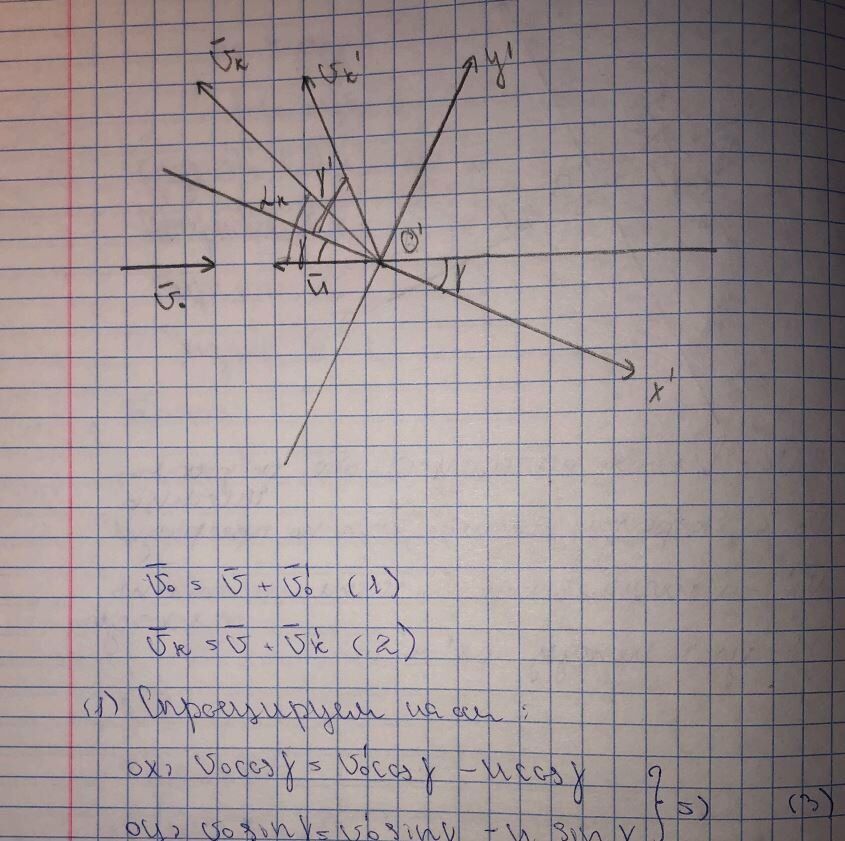 v̄ₖ
v̄ₖ'
y'
αₖ
γ'
O'
γ
ū
γ
v̄₀
x'
v̄₀ = v̄ + v̄₀' (1)
v̄ₖ = v̄ + v̄ₖ' (2)
(1) Спроецируем на оси:
ox: v₀cosγ = v₀'cosγ - u cosγ
oy: v₀sinγ = v₀'sinγ - u sinγ } => (3)